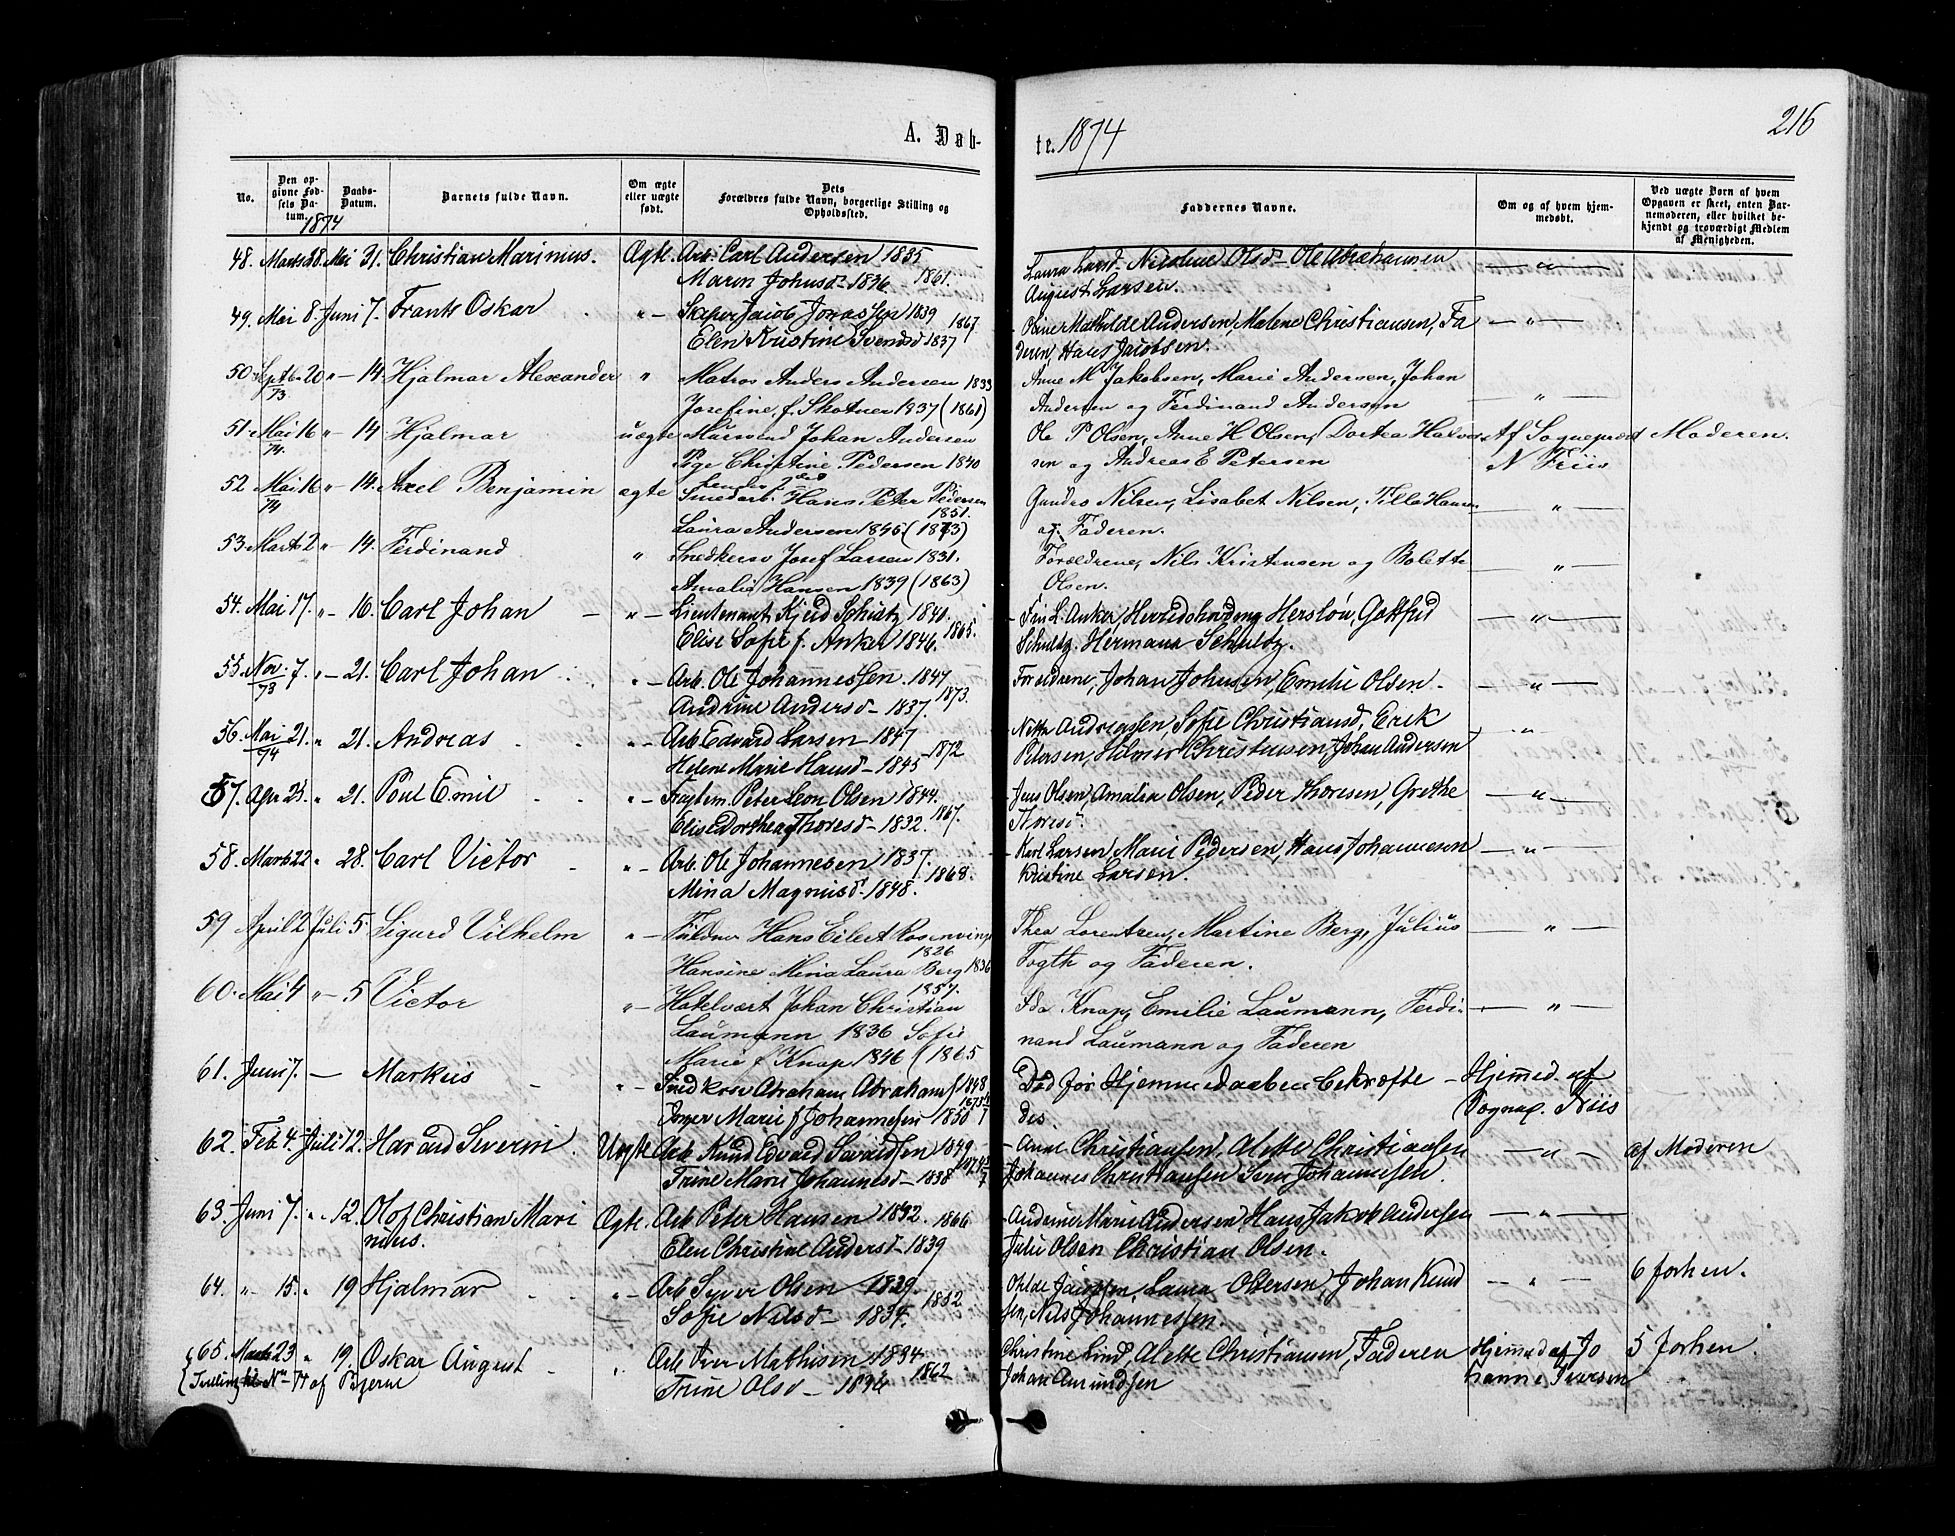 A. Døb-
te. 1874
216
No.
Den op-
givne Fød-
sels Da-
tum.
1874
Daabs-
Datum.
Barnets fulde Navn.
Om ægte
eller uægte
født.
Dets
Forældres fulde Navn, borgerlige Stilling og
Opholdssted.
Faddernes Navne.
Om og af hvem hjem-
medøbt.
Ved uægte Børn af hvem
Opgaven er skeet, enten Bar-
nemoderen, eller hvilket be-
kjendt og troværdigt Medlem
af Menigheden.
48. Marts 28. Mai 31. Christian Marinius. Ægte. Arb. Carl Andersen 1835
Maren Johnsd. 1836 1861.
Laura Larsd. Nicoline Olsd. Ole Abrahamsen — " —
August Larsen.
49. Mai 8. Juni 7. Frants Oskar " — Skiper Jacob Jonassen 1839
Elen Kristine Svendsd 1837 1867.
Mathilde Andersen, Malene Christiansen, Fa — " —
deren, Hans Jacobsen.
50. Septb 20 " — 14. Hjalmar Alexander " Matros Anders Andersen 1833
73
Josefine f. Skotner 1937 (1861)
Anne M Jakobsen, Marie Andersen, Johan
Andersen og Ferdinand Andersen — " —
51. Mai 16 " — 14 Hjalmar uægte MurSvend Johan Andersen
74.
Pige Christine Pedersen 1840
Ole P Olsen, Anne H Olsen, Dortea Halvor Af Sognepræst Moderen.
sen og Andreas E Petersen N Friis
52 Mai 16 " — 14. Axel Benjamin ægte Smedarb. Hans Peter Pedersen
74
1851.
Laura Andersen 1845 (1873)
Gundro Nilsen, Lisabet Nilsen, Tilla Hansen — " —
og Faderen.
53. Marts 2 " — 14. Ferdinand " Snedkersv Josef Larsen 1831.
Amalia Hansen 1839 (1863)
Forældrene, Nils Kristensen og Bolette — " —
Olsen.
54. Mai 17. " — 16. Carl Johan — " — Lieutenant Kjeld Schultz 1840.
Elise Sofie f. Anker 1846. 1865.
Anker, Herslöw, Gottfried — " —
Schultz. Hermana Schultz.
55. Nov. 7. " — 21. Carl Johan " — Arb. Ole Johannessen. 1847
73
Andrine Andersd — 1837. 1873.
Foreldrene, Johan Johnsen, Emilie Olsen — " —
56. Mai 21. " 21. Andreas " — Arb Edvard Larsen — 1847
74
Helene Marie Hansd — 1845 — 1872
Netta Andreassen, Sofie Christiansd, Erik — " —
Petersen, Hilmer Christensen, Johan Andersen
57. Apr 25. " 21. Poul Emil " — Fragtem. Peter Leon Olsen 1844.
Elise Dorthea Thoresd — 1832. 1867.
Jens Olsen, Amalia Olsen, Peder Thoresen, Grethe — " —
Thoresd.
58. Marts 22 " 28. Carl Victor " — Arb. Ole Johannesen 1837.
Mina Magnusd. 1848. 1868.
Karl Larsen Marie Pedersen, Hans Johannesen — " —
Kristine Larsen.
59 April 2 Juli 5. Sigurd Vilhelm " — Hans Eilert Rosenvinge
1826
Hansine Mina Laura Berg 1836
1857.
Thea Lorentzen, Martine Berg, Julius — " —
Fogth og Faderen.
60. Mai 4 " — 5 Victor " — Hotelvert Johan Christian
Laumann 1836 Sofie
Marie f Knap 1846 (1865
Ida Knap, Emilie Laumann, Ferdi- — " —
nand Laumann og Faderen
61. Juni 7. — Markus " — Snedkersv Abraham Abrahams 1848
Marie f Johannesen 1850
Död før Hjemmedaaben bekræfte — Hjemmed. af
des Sognep. Friis
62. Feb 4. Juli 12. Harald Severin. Uægte Arb Knud Edvard 1849
Trine Marie Johannesd — 1838
Anne Christiansen, Alette Christiansen — " — af Moderen
Johannes Christiansen Johannessen.
63. Juni 7. " 12. Olof Christian Mari Ægte. Arb Peter Hansen 1832 1866
nius. Elen Christine Andersd — 1839
Andrine Marie Andersen, Hans Jakob Andersen — " —
Julie Olsen Christian Olsen.
64. " 15. " 19 Hjalmar " — Arb Syver Olsen 1829.
Sofie Nilsd — 1834. 1852
Laura Ottersen, Johan Knud — " — 6 forhen.
sen, Nils Johannessen.
65. Marts 23 " 19. Oskar August — " Arb Iver Mathisen 1834
af Bjerne Trine Olsd — 1834 1862
Christine Lind, Alette Christiansen, Faderen Hjemmed af Jo 5 forhen.
Johan Amundsen hanne Iversen